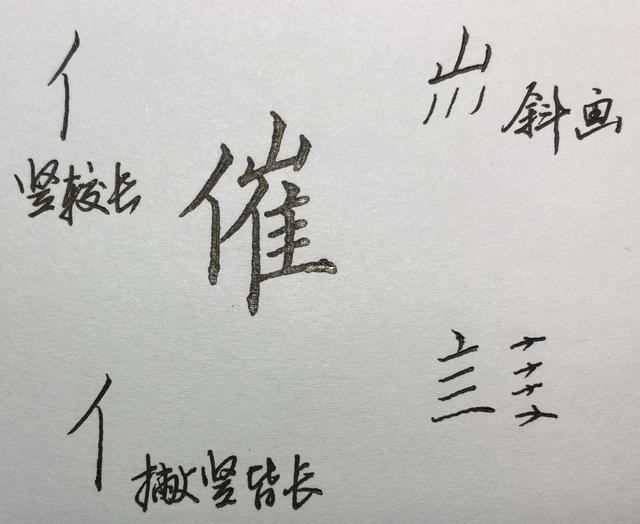 亻
山
斜画
竖较长
催
亻
撇竖皆长